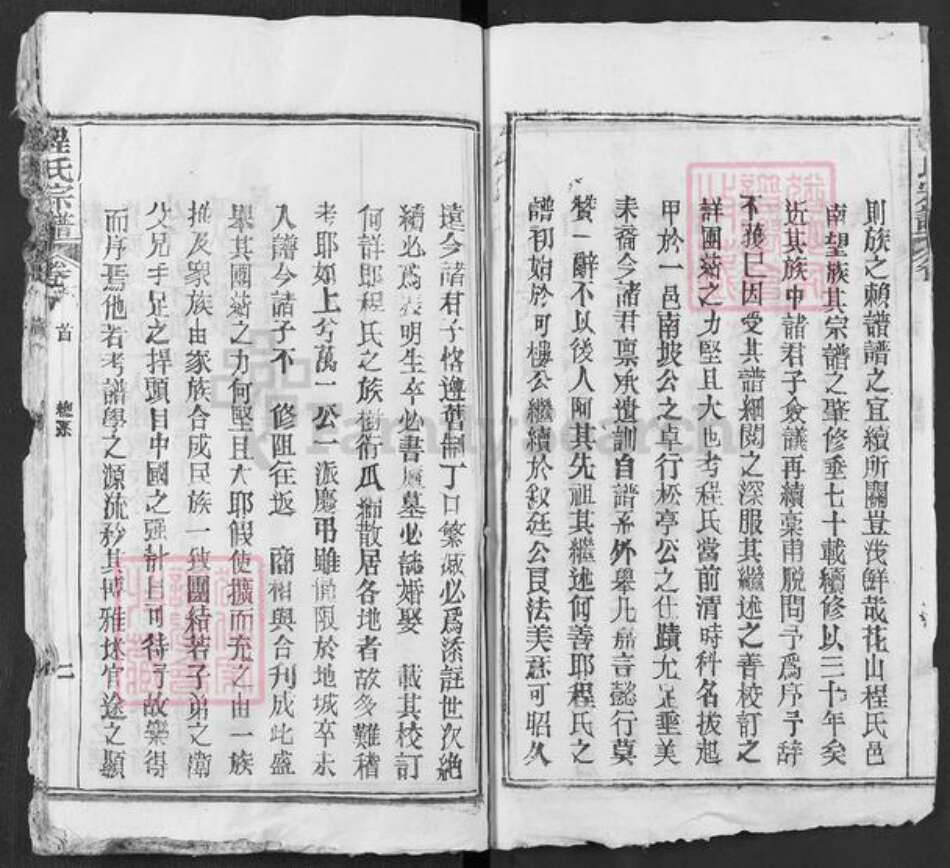 則族之賴譜譜之宜續所關豈淺鮮哉花山程氏邑
南望族其宗譜之肇修垂七十載續修以三十年矣
近其族中諸君子僉議再續橐甫脫問予爲序予辭
不獲已因受其譜細閱之深服其繼述之善校訂之
詳團結之力堅且大也考程氏當前清時科名拔起
甲於一邑南坡公之卓行松亭公之仕蹟允足垂美
來裔今諸君稟承遺訓自譜系外舉凡嘉言懿行莫
贊一辭不以後人阿其先祖其繼述何善耶程氏之
譜初始於可樓公繼續於敘廷公良法美意可昭久
遠今諸君子恪遵舊制丁口繁滋必爲添註世次絕
續必爲表明生卒必書廬墓必誌婚娶 載其校訂
何詳耶程氏之族衍瓜綿散居各地者故多難稽
考耶如上兮萬一公一派慶弔雖 限於地域卒未
入譜今諸子不 修阻往返 商相與合刊成此盛
舉其團結之力何堅且大耶假使擴而充之由一族
推及家族由家族合成民族一致團結若子弟之衛
父兄手足之捍頭目中國之強計日可待予故樂得
而序焉他若考譜學之源流矜其博雅述官途之顯
程氏宗譜
卷
首
二
FamilySearch